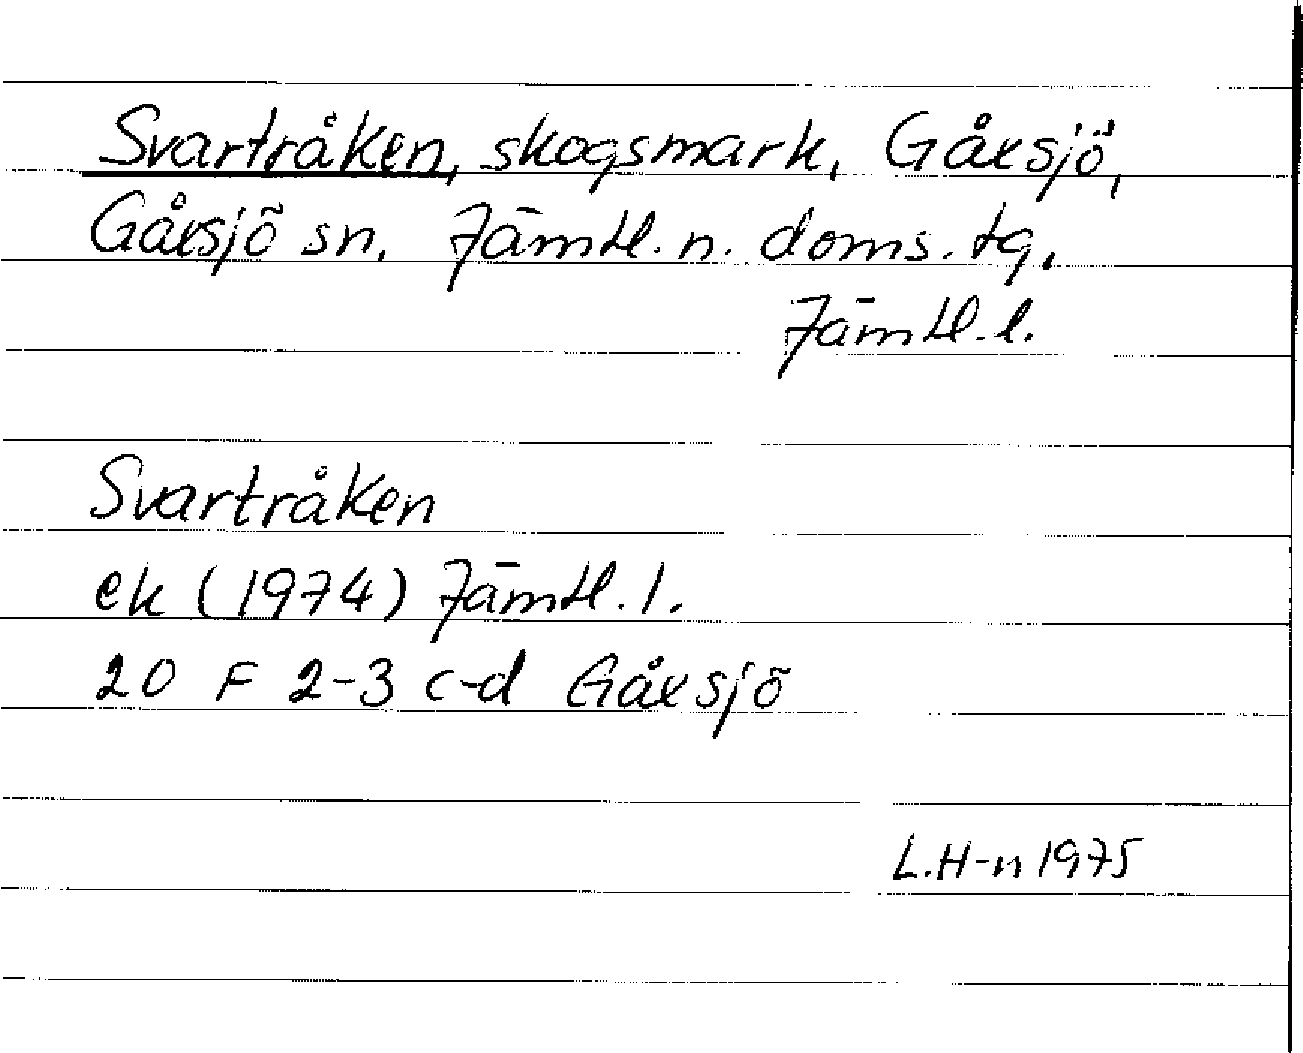 Svartråken, skogsmark, Gåxsjö,
Gåxsjö sn. Jämtl. n. doms. tg.
Jämtl. l.
Svartråken
ek (1974) Jämtl. l.
20 F 2-3 c-d Gåxsjö
L.H-n 1975